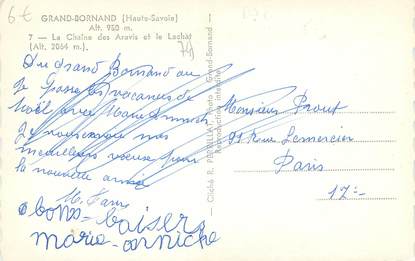 6€
GRAND-BORNAND (Haute-Savoie)
Alt. 950 m.
7 - La Chaîne des Aravis et le Lachat
(Alt. 2064 m.).
74
Du Grand Bornand où
je passe les vacances de
Noël avec
Je vous envoie mes
meilleurs voeux pour
la nouvelle année
M.
bons baisers
maria
Cliché R. PERRILLAT, Photo Grand-Bornand
Reproduction interdite
Monsieur Prout
91 Rue Lemercier
Paris
17